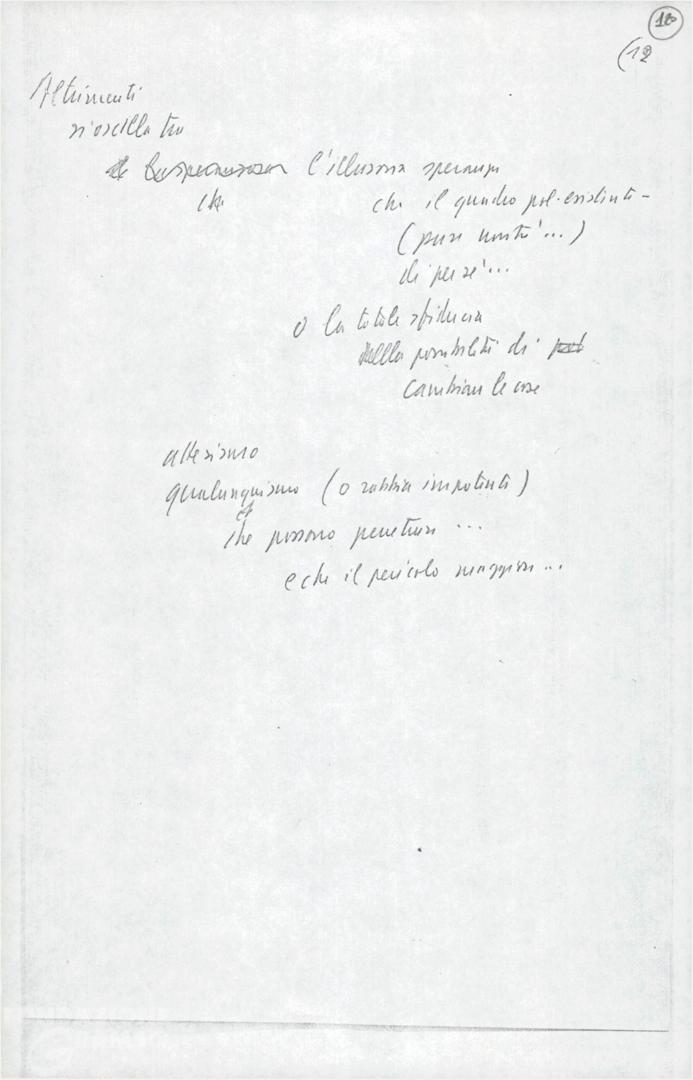 18
(12
Altrimenti
si oscilla tra
la speranza l'illusoria speranza
che che il quadro pol. esistente -
(pure novità...)
di per sé...
o la totale sfiducia
nella possibilità di
cambiare le cose
attesismo
qualunquismo (o rabbia impotente)
che possono penetrare ...
e che il pericolo maggiore...